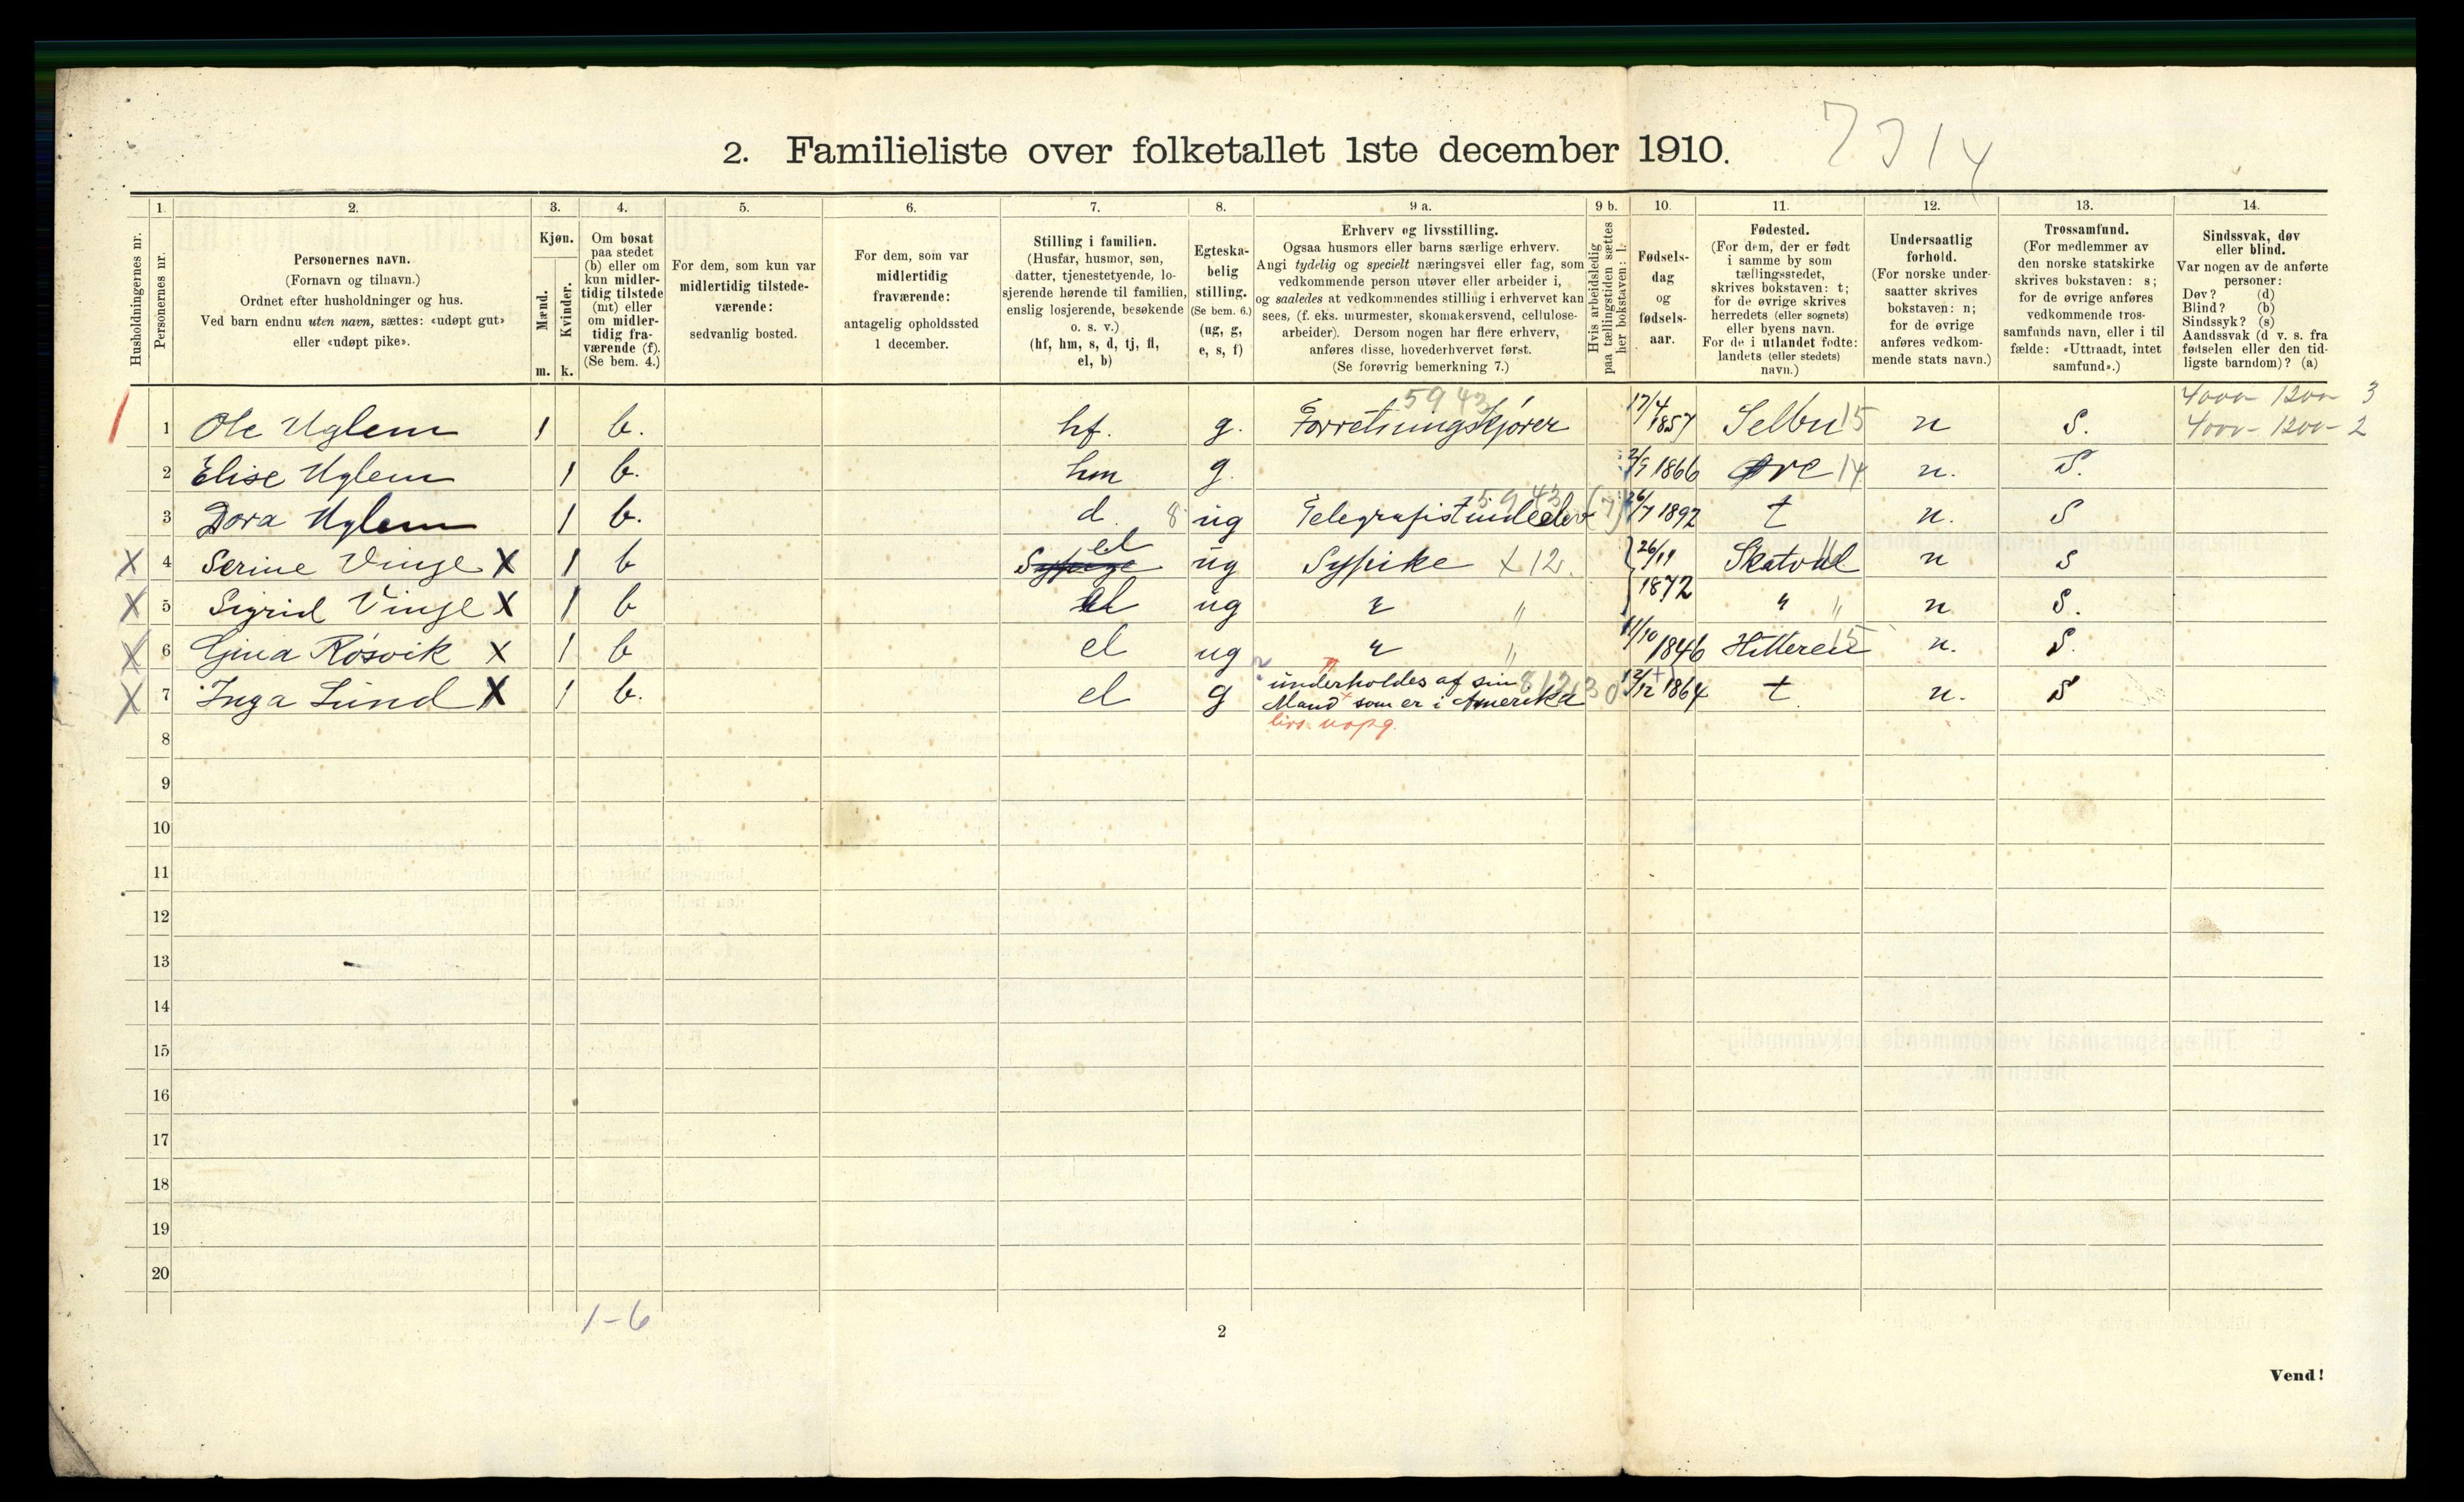 2. Familieliste over folketallet 1ste december 1910.
7714
1. 2. 3. 4. 5. 6. 7. 8. 9 a. 9 b. 10. 11. 12. 13. 14.
Husholdningernes nr.
Personernes nr.
Personernes navn.
(Fornavn og tilnavn.)
Ordnet efter husholdninger og hus.
Ved barn endnu uten navn, sættes: «udøpt gut»
eller «udøpt pike».
Kjøn.
Mænd.
Kvinder.
m. k.
Om bosat
paa stedet
(b) eller om
kun midler-
tidig tilstede
(mt) eller
om midler-
tidig fra-
værende (f).
(Se bem. 4.)
For dem, som kun var
midlertidig tilstede-
værende:
sedvanlig bosted.
For dem, som var
midlertidig
fraværende:
antagelig opholdssted
1 december.
Stilling i familien.
(Husfar, husmor, søn,
datter, tjenestetyende, lo-
sjerende hørende til familien,
enslig losjerende, besøkende
o. s. v.)
(hf, hm, s, d, tj, fl,
el, b)
Egteska-
belig
stilling.
(Se bem. 6.)
(ug, g,
e, s, f)
Erhverv og livsstilling.
Ogsaa husmors eller barns særlige erhverv.
Angi tydelig og specielt næringsvei eller fag, som
vedkommende person utøver eller arbeider i,
og saaledes at vedkommendes stilling i erhvervet kan
sees, (f. eks. murmester, skomakersvend, cellulose-
arbeider). Dersom nogen har flere erhverv,
anføres disse, hovederhvervet først.
(Se forøvrig bemerkning 7.)
Hvis arbeidsledig
paa tællingstiden sættes
her bokstaven: l.
Fødsels-
dag
og
fødsels-
aar.
Fødested.
(For dem, der er født
i samme by som
tællingsstedet,
skrives bokstaven: t;
for de øvrige skrives
herredets (eller sognets)
eller byens navn.
For de i utlandet fødte:
landets (eller stedets)
navn.)
Undersaatlig
forhold.
(For norske under-
saatter skrives
bokstaven: n;
for de øvrige
anføres vedkom-
mende stats navn.)
Trossamfund.
(For medlemmer av
den norske statskirke
skrives bokstaven: s;
for de øvrige anføres
vedkommende tros-
samfunds navn, eller i til
fælde: «Uttraadt, intet
samfund».)
Sindssvak, døv
eller blind.
Var nogen av de anførte
personer:
Døv? (d)
Blind? (b)
Sindssyk? (s)
Aandssvak (d v. s. fra
fødselen eller den tid-
ligste barndom)? (a)
5943 4000- 1200- 3
1 Ole Uglem 1 b. hf. g. Forretningskjører 17/4 1857 Selbu 15 n S. 4000- 1200- 2
2 Elise Uglem 1 b. hm g. 2/5 1866 Øre 14 n. S.
5943
3 Dora Uglem 1 b. d 8 ug Telegrafistindeelev 26/7 1892 t n. S
el
X 4 Serine Vinge X 1 b Sypige ug Sypike X 12. 26/11 1872 Skatval n s
X 5 Sigrid Vinge X 1 b el ug " " " " n S.
X 6 Gjina Rösvik X 1 b el ug " " 11/10 1846 Hitteren 15 n. S.
X 7 Inga Lund X 1 b. el g underholdes af sin
Mand som er i Amerika 12/12 1864 t n. S
livs. uopg.
8
9
10
11
12
13
14
15
16
17
18
19
20
1-6
2
Vend!